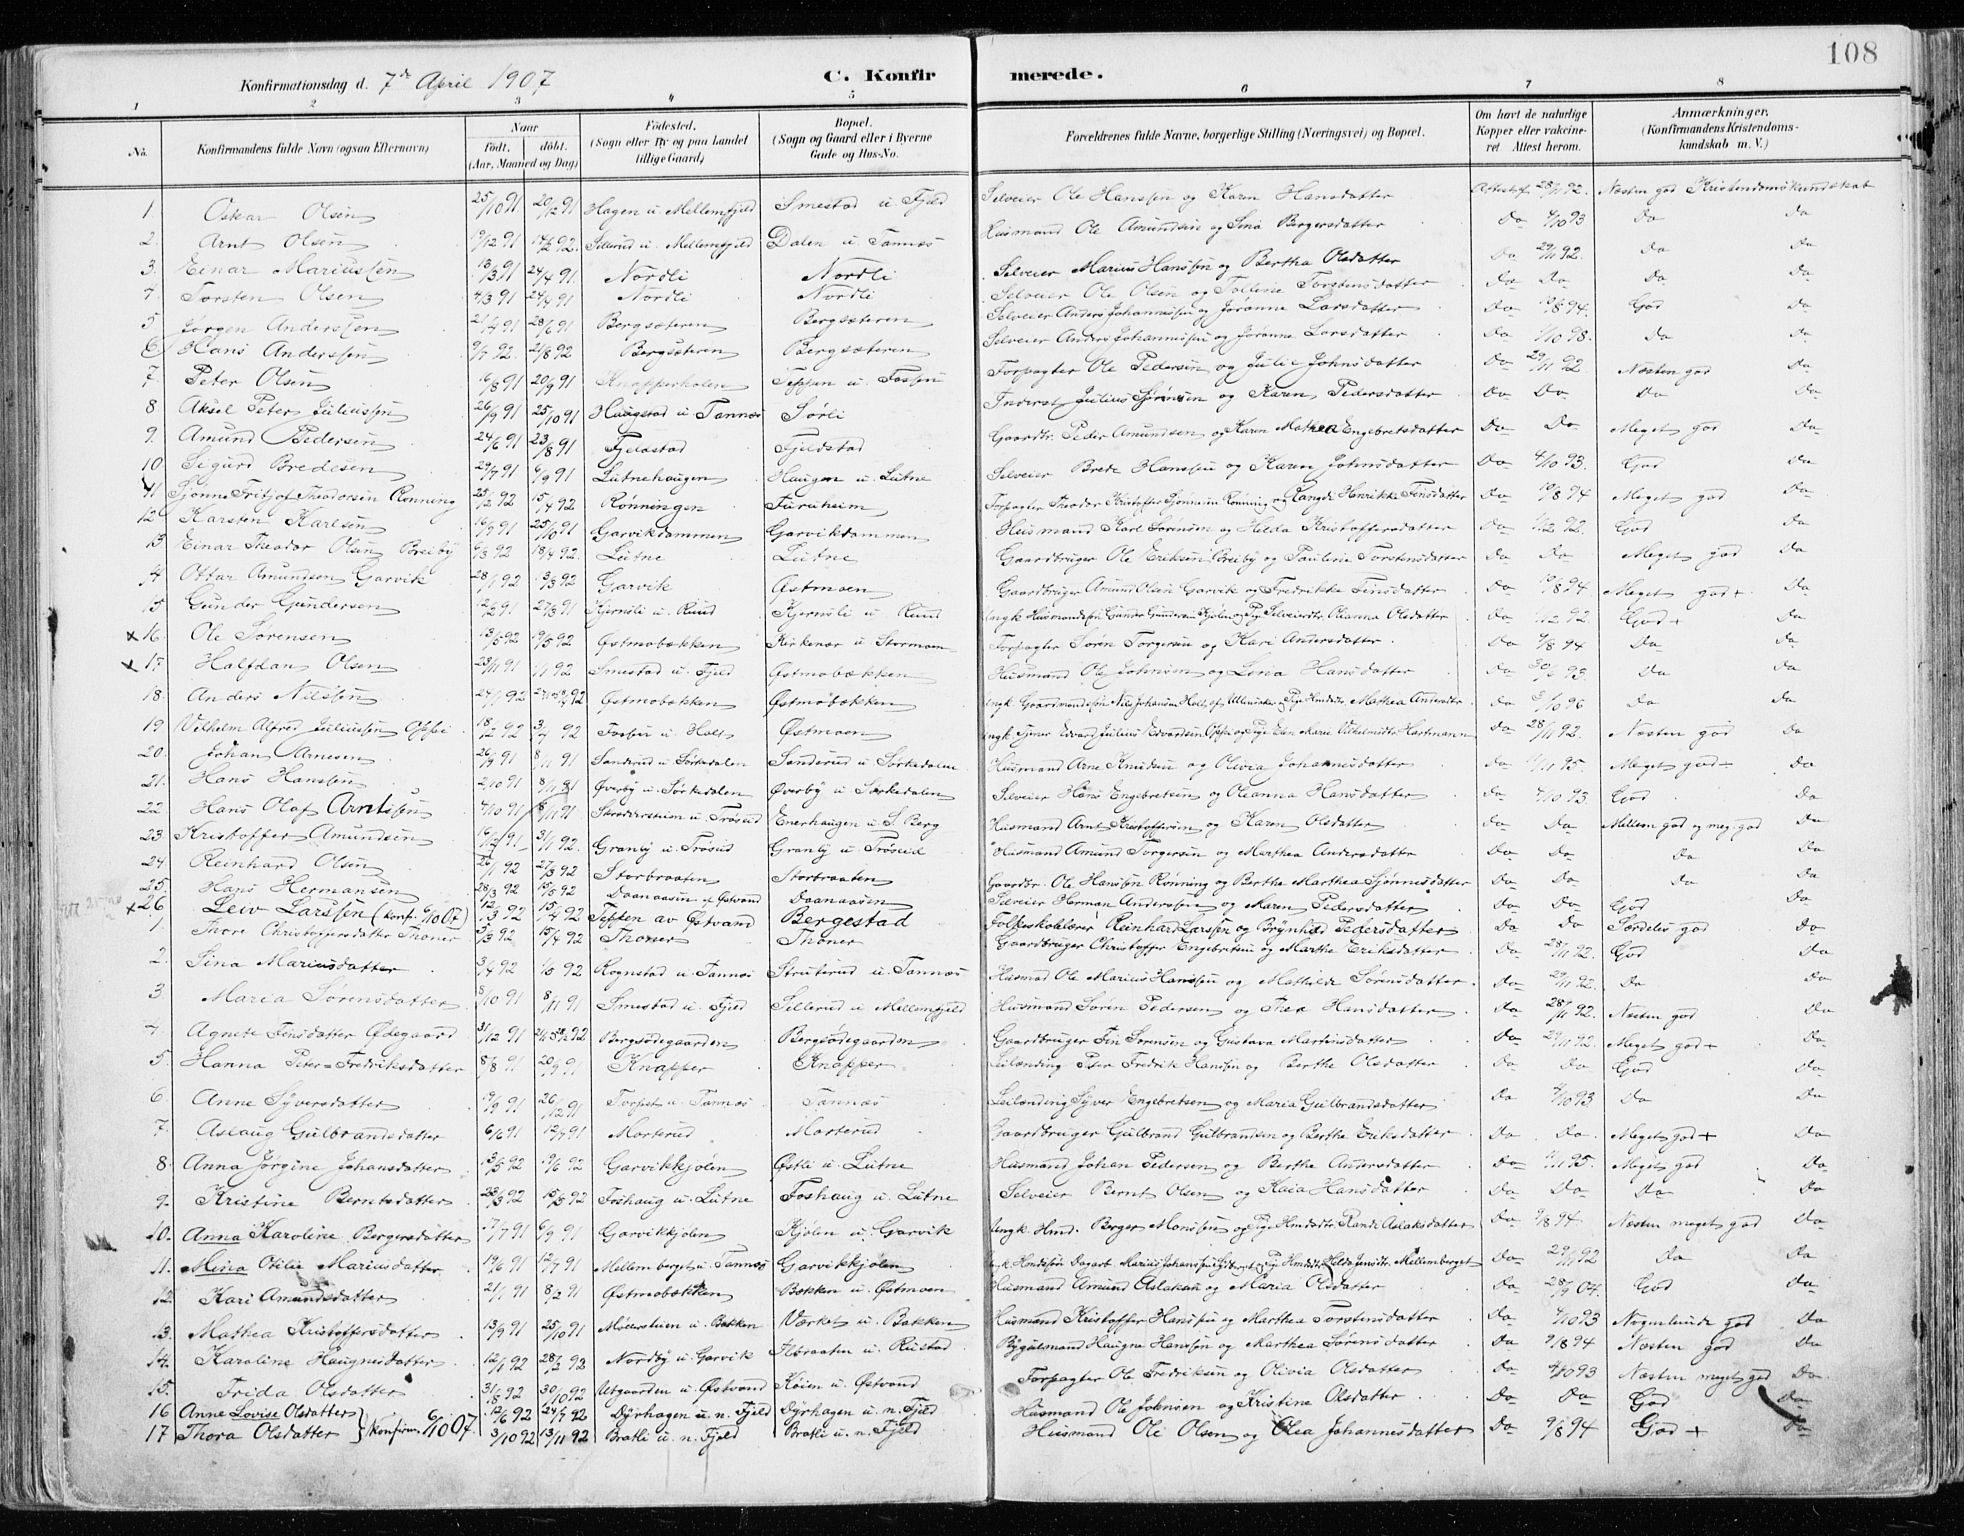 108
Konfirmationsdag d. 7de April 1907
C. Konfirmerede.
1 2 3 4 5 6 7 8
No. Konfirmandens fulde Navn (ogsaa Efternavn) Naar født. døbt. (Aar, Maaned og Dag) Fødested. (Sogn eller By og paa Landet tillige Gaard) Bopæl. (Sogn og Gaard eller i Byerne Gade og Hus-No. Forældrenes fulde Navne, borgerlige Stilling (Næringsvei) og Bopæl. Om havt de naturlige Kopper eller vaccineret Attest herom. Anmærkninger. (Konfirmandens Kristendomskundskab m. V.)
1. Oskar Olsen 25/10 91 20/12 91 Hagen u Mellemfjeld Smestad u Fjeld Selveier Ole Hanssen og Karen Hansdatter Attest af 28/11 92. Næsten god Kristendomskundskab
2. Arnt Olsen 19/12 91 14/2 92. Sellerud u. Mellemfjeld Dalen u. Tannæs Husmand Ole Amundsen og Sina Bergersdatter Do 4/10 93 Do Do
3. Einar Mariussen 13/3 91 24/4 91. Nordli Nordli Selveier Marius Hanssen og Bertha Olsdatter Do 29/11 92. Do Do
4. Torsten Olsen 4/3 91 24/4 91 Nordli Nordli Selveier Ole Olsen og Torstensdatter Do Do Do Do
5 Jørgen Anderssen 21/4 91 28/6 91 Bergsæteren Bergsæteren Selveier Anders Johannessen og Jøranne Larsdatter Do 19/8 94. God Do
6 Hans Anderssen 9/7 92. 21/8 92 Bergsæteren Bergsæteren Selveier Anders Johannessen og Jøranne Larsdatter Do 1/10 98. Do Do
7. Peter Olsen 16/8 91 20/9 91 Knapperholen Teppen u. Fossen Forpagter Ole Pedersen og Julie Johnsdatter Do 29/11 92. Næsten god Do
8 Aksel Peter Juliussen 26/9 91 25/10 91 Haugstad u. Tannæs Sørli Inderst Julius Sørensen og Karen Pedersdatter Do Do Do Do
9. Amund Pedersen 24/6 91 23/8 91 Fjeldstad Fjeldstad Gaardbr. Peder Amundsen og Karen Mathea Engebretsdatter Do Do Meget god Do
10 Sigurd Bredesen 29/7 91 6/9 91 Lutnehaugen Haugen u Lutne Selveier Brede Hanssen og Karen Johnsdatter Do 4/10 93. God Do
11 Sjønne Fritjof Theodorsen Rønning 25/2 92 15/4 92 Rønningen Furuheim Forpagter Theodor Kristoffer Sjønnesen Rønning og Rangdi Henrikke Finsdatter Do 19/8 94 Meget god Do
12 Karsten Karlsen 16/9 91 25/10 91 Garvikdammen Garvikdammen Husmand Karl Sørensen og Hilda Kristoffersdatter Do 1/12 92. God Do
13 Einar Theodor Olsen Breiby 6/3 92 18/4 92. Lutne Lutne Gaardbruger Ole Eriksen Breiby og Pauline Torstensdatter Do Do Meget god Do
14 Ottar Amundsen Garvik 28/1 92 13/3 92 Garvik Østmoen Gaardbruger Amund Olsen Garvik og Fredrikke Finsdatter Do 19/8 94. Meget god + Do
15 Gunder Gundersen 12/8 91 27/9 91 Kjernsli u. Ruud Kjernsli u. Ruud Ungk. Husmandssøn Gunder Gundersen Kjølen og Pige Selveierdtr. Oleanna Olsdatter Do 1/12 92 God + Do
x 16 Ole Sørensen 13/5 92 19/5 92 Østmobækken Kirkenær u. Stormoen Forpagter Søren Torgersen og Kari Andersdatter Do 9/8 94 Do Do
x 17 Halfdan Olsen 23/11 91 1/1 92 Smestad u. Fjeld Østmobækken Husmand Ole Johnsen og Lina Hansdatter Do 30/6 93. Do Do
18. Anders Nilssen 24/1 92 Østmobækken Østmobækken Do 3/10 96 Do Do
19 Vilhelm Alfred Juliussen Opsei 18/2 92 3/4 92 Fossen u Holt Østmoen Do 28/11 92. Næsten god Do
20. Johan Arnesen 26/9 91 8/11 91 Sanderud u Sørkedalen Sanderud u Sørkedalen Husmand Arne Knudsen og Olivia Johannesdatter Do 11/11 95. Meget god - Do
21. Hans Hanssen 2/10 91 8/11 91 Øverby u. Sørkedalen Øverby u Sørkedalen Selveier Hans Engebretsen og Oleanna Hansdatter Do 4/10 93. God Do
22. Hans Olaf Arntssen 4/10 91 8/11 91 Skrædderstuen u. Trøseid Enerhaugen u S. Berg Husmand Arnt Kristoffersen og Karen Olsdatter Do Do Mellem god og meg. god Do
23 Kristoffer Amundsen 16/12 91. 31/1 92. Granly u. Trøseid Granly u Trøseid Husmand Amund Torgersen og Marthea Andersdatter Do Do Do Do
24 Reinhard Olsen 26/1 92 27/3 92 Storbraaten Storbraaten Gaardbr. Ole Hanssen Rønning og Berthe Marthea Sjønnesdatter Do Do Do Do
25. Hans Hermansen 28/3 92 15/5 92 Daanaasen af Østvand Daanaasen Selveier Herman Anderssen og Maren Pedersdatter Do Do God Do
x 26 Leiv Larssen (konf. 6/10 07) 12/3 92 15/4 92 Teppen av Østvand Bergestad Folkeskolelærer Reinhard Larssen og Brynhild Pedersdatter Do Do Særdeles god Do
1. Thore Christoffersdatter Thoner 5/3 92 15/4 92 Thoner Thoner Gaardbruger Christoffer Engebretsen og Marthe Eriksdatter Do 28/11 92. God Do
2. Sina Mariusdatter 3/4 92 1/5 92 Rognstad u. Tannæs Struterud u. Tannæs Husmand Ole Marius Hanssen og Mathilde Sørensdatter Do 29/11 92. Do Do
3 Maria Sørensdatter 8/10 91 8/11 91 Smestad u. Fjeld Sellerud u Mellemfjeld Husmand Søren Pedersen og Thea Hansdatter Do 28/11 92. Næsten god Do
4 Agnete Finsdatter Ødegaard 31/12 91 Bergsødegaarden Bergsødegaarden Gaardbruger Fin Sørensen og Gustava Martinsdatter Do 29/11 92. Meget god + Do
5. Hanna Peter=Fredriksdatter 8/8 91 20/9 91 Knapper Knapper Leilænding Peter Fredrik Hanssen og Berthe Olsdatter Do Do God Do
6. Anne Syversdatter 19/9 91 26/12 91 Torfest u. Tannæs Tannæs Leilænding Syver Engebretsen og Maria Gulbrandsdatter Do 4/10 93 Do Do
7. Aslaug Gulbrandsdatter 6/6 91 12/7 91 Morterud Morterud Gaardbruger Gulbrand Gulbrandsen og Berthe Eriksdatter Do Do Meget god + Do
8. Anna Jørgine Johansdatter 13/5 92 19/6 92 Garvikkjølen Østli u Lutne Husmand Johan Pedersen og Berthe Andersdatter Do 11/11 95. Meget god Do
9. Kristine Berntsdatter 23/3 92 15/5 92 Foshaug u. Lutne Foshaug u. Lutne Selveier Bernt Olsen og Kaia Hansdatter Do Do Do Do
10. Anna Karoline Bergersdatter 17/7 91 6/9 91 Garvikkjølen Kjølen u. Garvik Ungk. Hmd. Berger Monssen og Pige Hmdsdtr Randi Aslaksdatter Do 9/8 94. Næsten meget god Do
11. Mina Otilie Mariusdatter 19/6 91 12/7 91 Mellemberget u. Tannæs Garvikkjølen Do 29/11 92 Do Do
12. Kari Amundsdatter 21/1 91 8/2 91 Østmobækken Bækken u. Østmoen Husmand Amund Aslaksen og Maria Olsdatter Do 28/9 04. God Do
13. Mathea Kristoffersdatter 13/9 91 25/10 91 Møllerstuen u. Bakken Værket u. Bakken Husmand Kristoffer Hanssen og Marthea Torstensdatter Do 4/10 93 Nogenlunde god Do
14. Karoline Haagnesdatter 12/1 92 28/2 92 Nordby u. Garvik Ilbraaten u. Rustad Bygselmand Haagne Hanssen og Marthea Sørensdatter Do 9/8 94 Næsten god Do
15. Frida Olsdatter 31/8 92 30/10 92 Utgaarden u. Østvand Køien u. Østvand Forpagter Ole Fredriksen og Olivia Olsdatter Do 4/10 93 Næsten meget god Do
16 Anne Lovise Olsdatter 12/6 92 24/7 92 Dyrhagen u. n. Fjeld Dyrhagen u. n. Fjeld Husmand Ole Johnsen og Kristine Olsdatter Do Do God Do
17 Thora Olsdatter } konfirm. 6/10 07 3/10 92 13/11 92 Bratli u. n. Fjeld Bratli u. n. Fjeld Husmand Ole Olsen og Olea Johannesdatter Do 9/8 94 God + Do